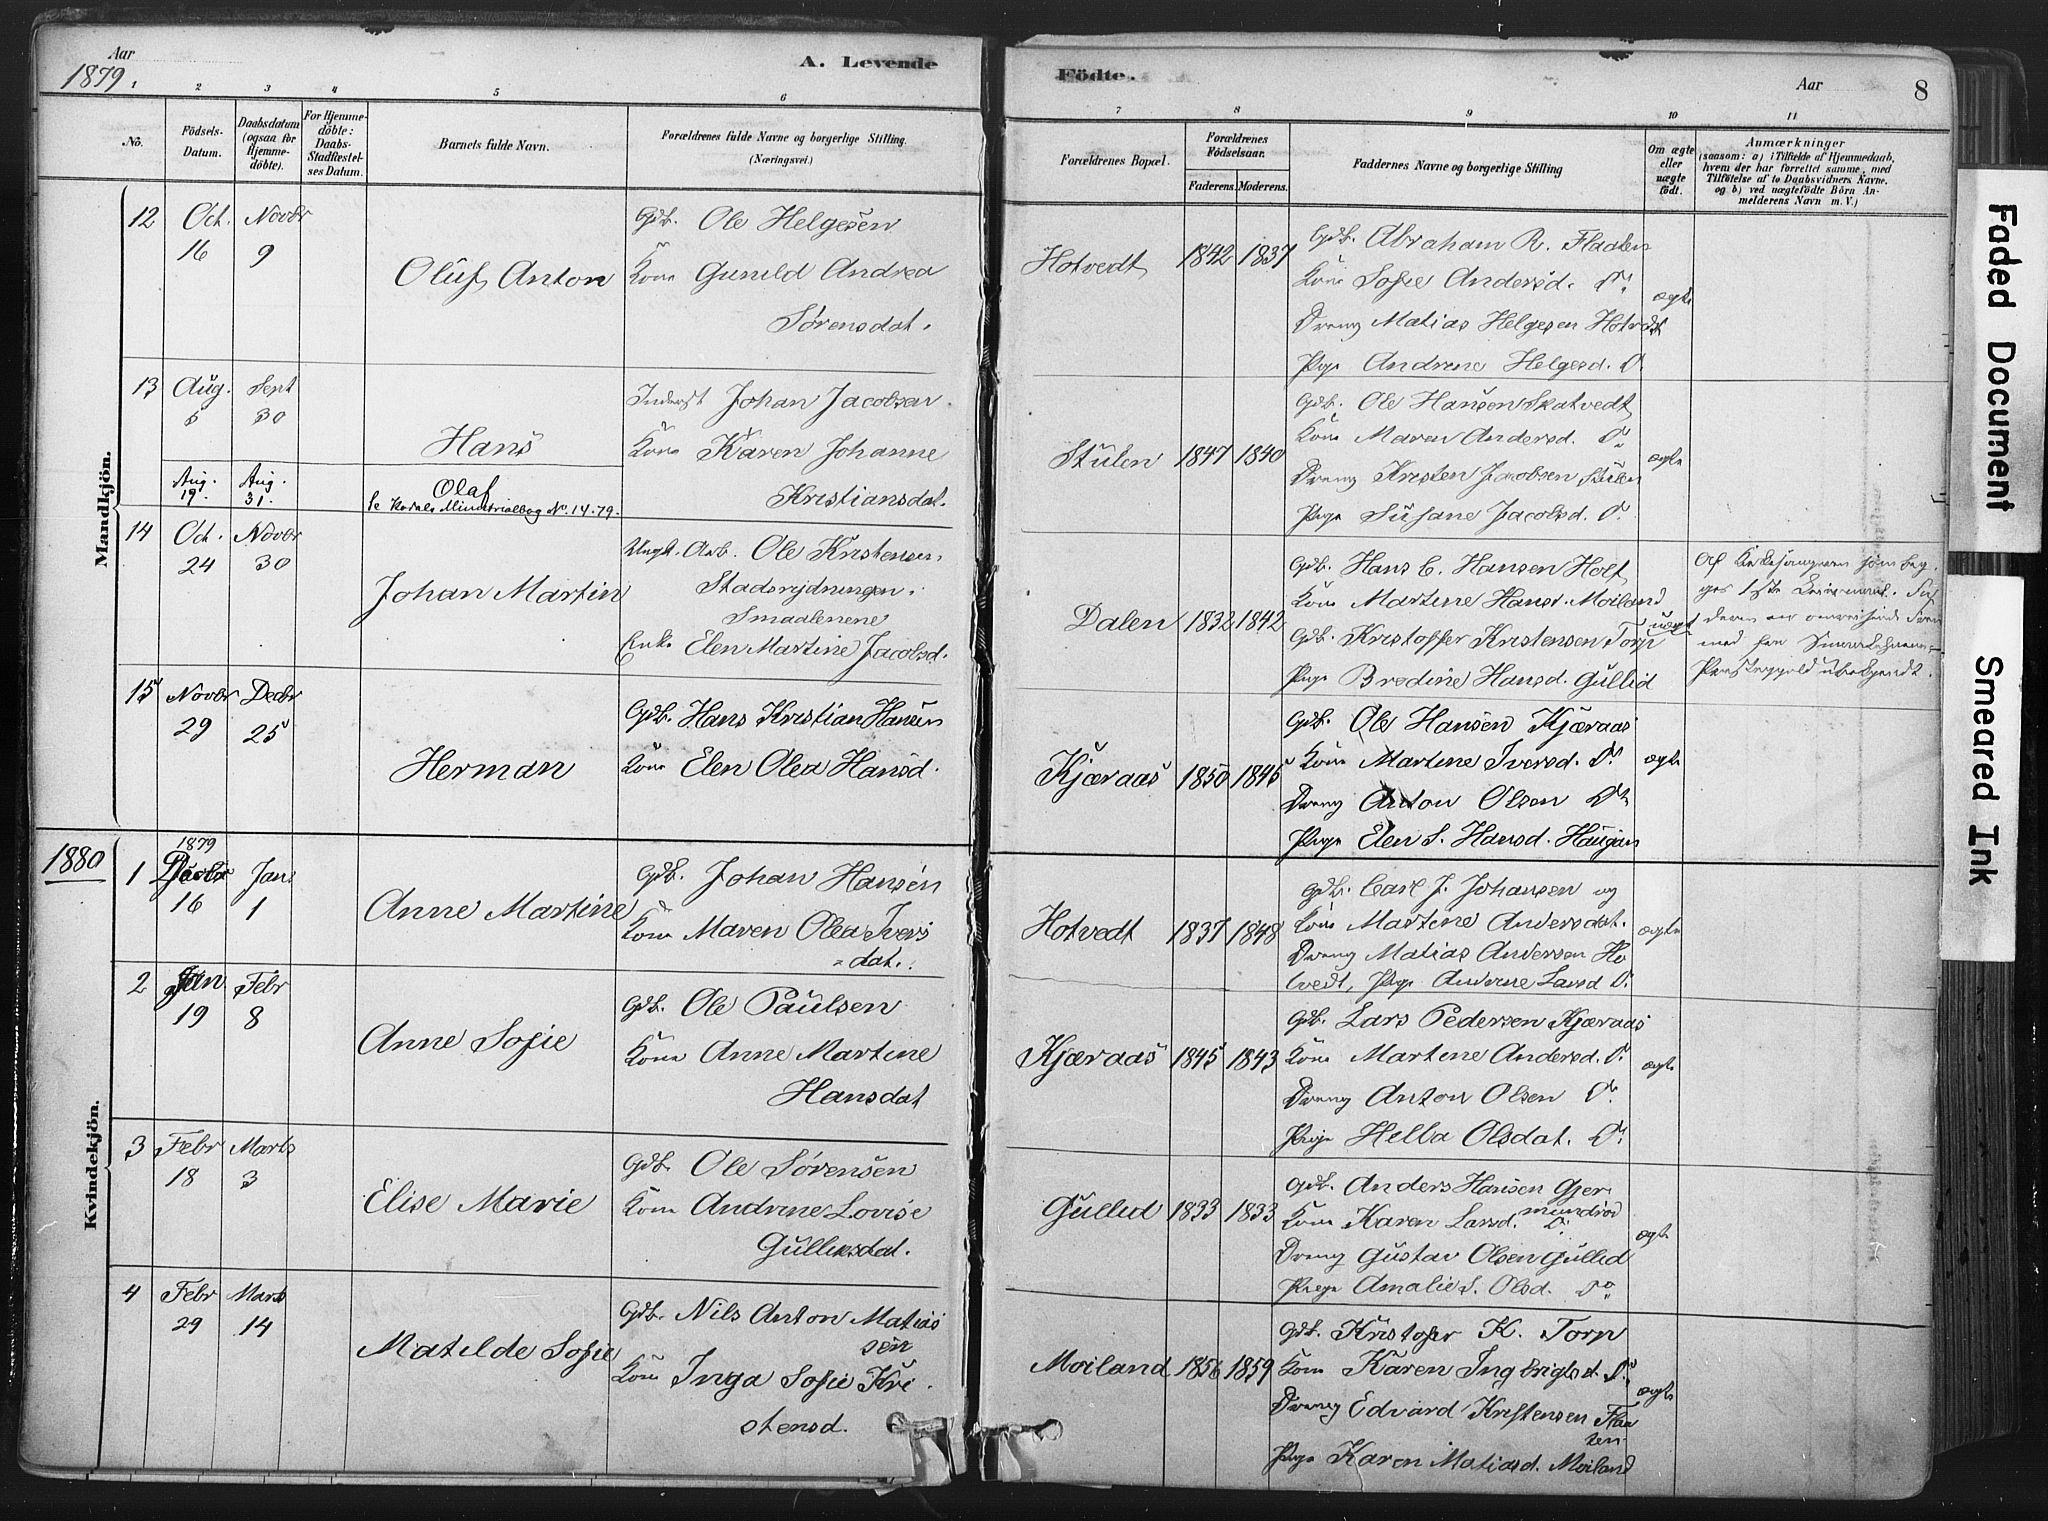 Aar
1879.
A. Levende
Födte.
Aar
8
1
2
3
4
5
6
7
8
9
10
11
No.
Födsels-
Datum.
Daabsdatum
(ogsaa for
Hjemme-
döbte).
For Hjemme-
döbte:
Daabs-
Stadfæstel-
ses Datum.
Barnets fulde Navn.
Forældrenes fulde Navne og borgerlige Stilling.
(Næringsvei.)
Forældrenes Bopæl.
Forældrenes
Födselsaar.
Faderens.
Moderens.
Faddernes Navne og borgerlige Stilling
Om ægte
eller
uægte
födt.
Anmærkninger
(saasom: a) i Tilfælde af Hjemmedaab,
hvem der har forrettet samme, med
Tilföielse af to Daabsvidners Navne,
og b) ved uægtefödte Börn An-
melderens Navn m. V.)
Mandkjön.
12
Oct.
16
Novbr
9
Oluf Anton
Gdb. Ole Helgesen
Kone Gunild Andrea
Sørensdat.
Hotvedt
1842
1837
Gdb. Abraham R. Fladen
Kone Sofie Andersd. Do
Dreng Matias Helgesen Hotvedt
Pige Andrine Helgesd. Do
ægte
13
Aug.
5
Sept
30
Hans
Inderst Johan Jacobsen
Kone Karen Johanne
Kristiansdat.
Stulen
1847
1840
Gdb. Ole Hansen Skatvedt
Kone Maren Andersd. Do
Dreng Kristen Jacobsen Stulen
Pige Susane Jacobsd. Do
ægte
Aug.
19.
Aug.
31.
Olaf
Se Kodals Ministrialbog No. 14-79.
14
Oct.
24
Novbr
30
Johan Martin
Ungk. Arb. Ole Kristensen
Stadsrydningen
Smaalenene
Enke Elen Martine Jacobsd.
Dalen
1832
1842
Gdb. Hans C. Hansen Holt
Kone Martine Hansd. Moiland
Gdb. Kristoffer Kristensen Torp
Pige Bredine Hansd. Gullid
uægt
15
Novbr
29
Decbr
25
Herman
Gdb. Hans Kristian Hansen
Kone Elen Olea Hansd.
Kjæraas
1850
1845
Gdb. Ole Hansen Kjæraas
Kone Martine Iversd. Do
Dreng Anton Olsen Do
Pige Elen S. Hansd. Haugan
ægte
1880
Kvindekjön.
1
1879
Decbr
16
Jan.
1
Anne Martine
Gdb. Johan Hansen
Kone Maren Olea Ivers
-dat.
Hotvedt
1837
1848
Gdb. Carl J. Johansen og
Kone Martine Andersdat.
Dreng Matias Andersen Ho
tvedt, Pige Anderine Larsd Do
ægte
2
Jan
19
Febr
8
Anne Sofie
Gdb. Ole Paulsen
Kone Anne Martine
Hansdat
Kjæraas
1845
1843
Gdb. Lars Pedersen Kjæraas
Kone Martine Andersd. Do
Dreng Anton Olsen Do
Pige Helba Olsdat. Do
ægte
3
Febr
18
Marts
3
Elise Marie
Gdb. Ole Sørensen
Kone Andrine Lovise
Gulliksdat.
Gullid
1833
1833
Gdb. Anders Hansen Gjer
mundrød
Kone Karen Larsd. Do
Dreng Gustav Olsen Gullid
Pige Amalie S. Olsd. Do
ægte
4
Febr
29
Marts
14
Matilde Sofie
Gdb. Nils Anton Matias
sen
Kone Inga Sofie Kri
stensd.
Moiland
1856
1859
Gdb. Kristofer K. Torp
Kone Karen Ingebrigtsd. Do
Dreng Edvard Kristensen Flaa
ten
Pige Karen Matiasd. Moiland
ægte
Faded Document
Smeared Ink